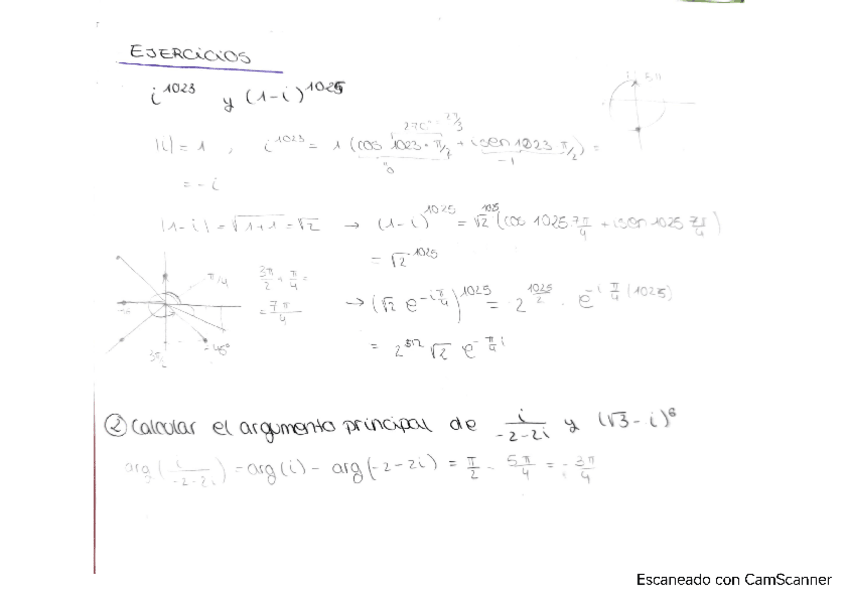 EJERCICIOS
i^1023 y (1-i)^1025
5π
270°
|i| = 1 , i^1023 = 1 (cos 1023·π/2 + i sen 1023 π/2) =
0 -1
= -i
|1-i| = √1+1 = √2 → (1-i)^1025 = √2^1025 (cos 1025 7π/4 + i sen 1025 7π/4)
= √2^1025
π/4
3π/2 + π/4 =
= 7π/4
→ (√2 e^-iπ/4)^1025 = 2^1025/2 · e^-i π/4 (1025)
-45°
= 2^512 √2 e^-π/4 i
② Calcular el argumento principal de i/-2-2i y (√3-i)^6
arg (i/-2-2i) = arg(i) - arg(-2-2i) = π/2 - 5π/4 = -3π/4
Escaneado con CamScanner